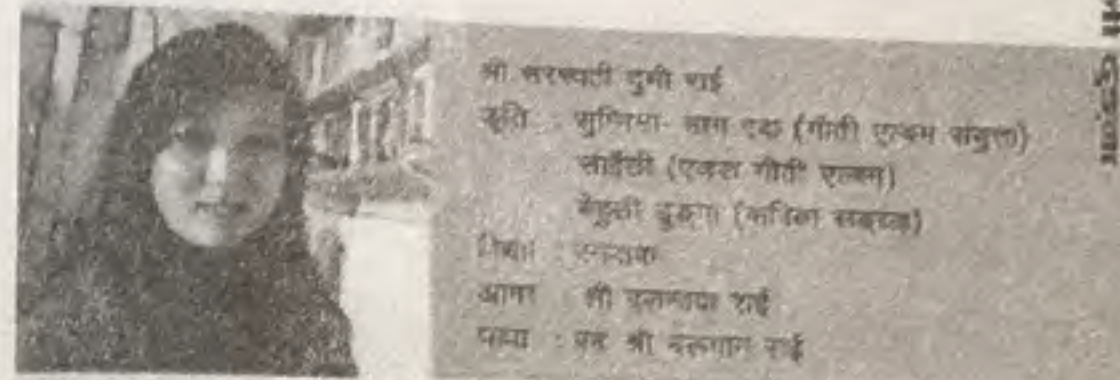 श्री सरस्वती दुमी राई
कृति : सुम्निमा- भाग एक (गीती एल्बम संयुक्त)
साईली (एकल गीती एल्बम)
बेहुली ढुङ्गा (कविता सङ्ग्रह)
शिक्षा : स्नातक
आमा : श्री राई
पापा : स्व श्री राई